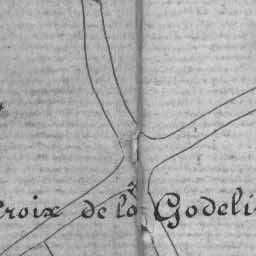 croix de la Godeli